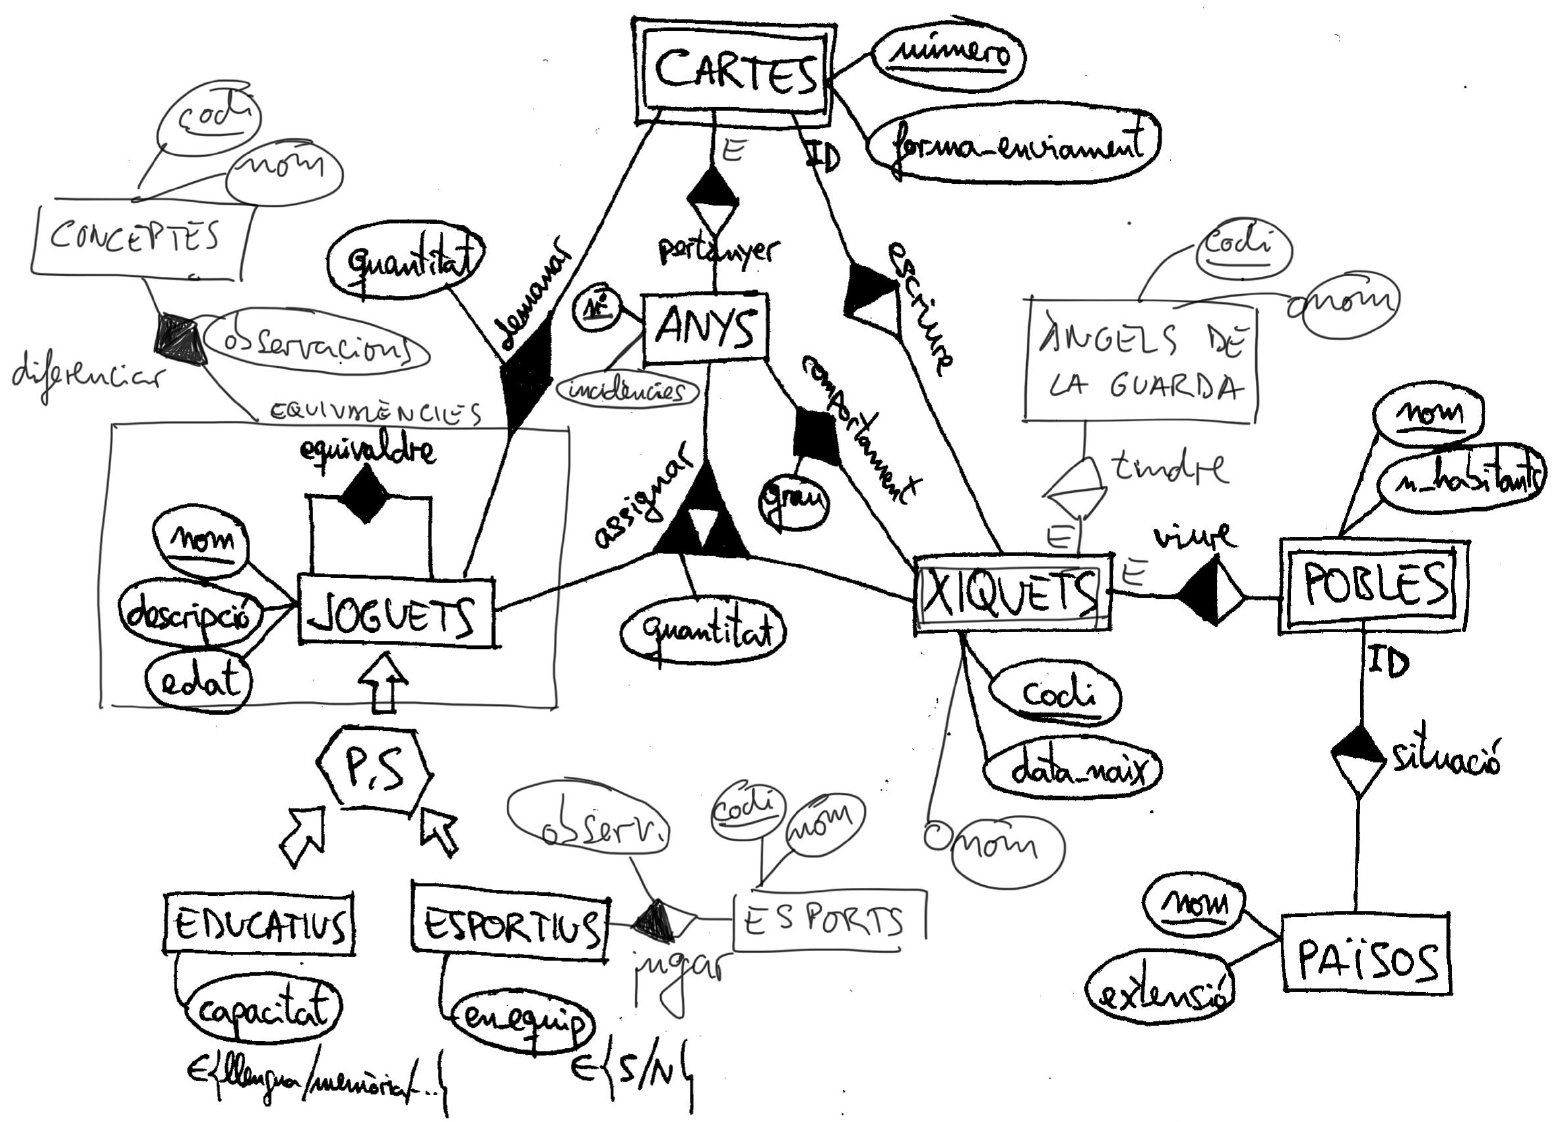 CARTES
número
forma_enviament
E
ID
codi
nom
CONCEPTES
quantitat
demanar
pertànyer
escriure
codi
nom
nº
ANYS
incidències
ÀNGELS DE
LA GUARDA
observacions
diferenciar
EQUIVALÈNCIES
equivaldre
comportament
grau
assignar
tindre
E
nom
n_habitants
viure
E
XIQUETS
POBLES
ID
nom
descripció
edat
JOGUETS
quantitat
codi
data_naix
nom
situació
P,S
observ.
codi
nom
EDUCATIUS
ESPORTIUS
ESPORTS
jugar
nom
extensió
PAÏSOS
capacitat
en_equip
∈{llengua/memòria/...}
∈{S/N}